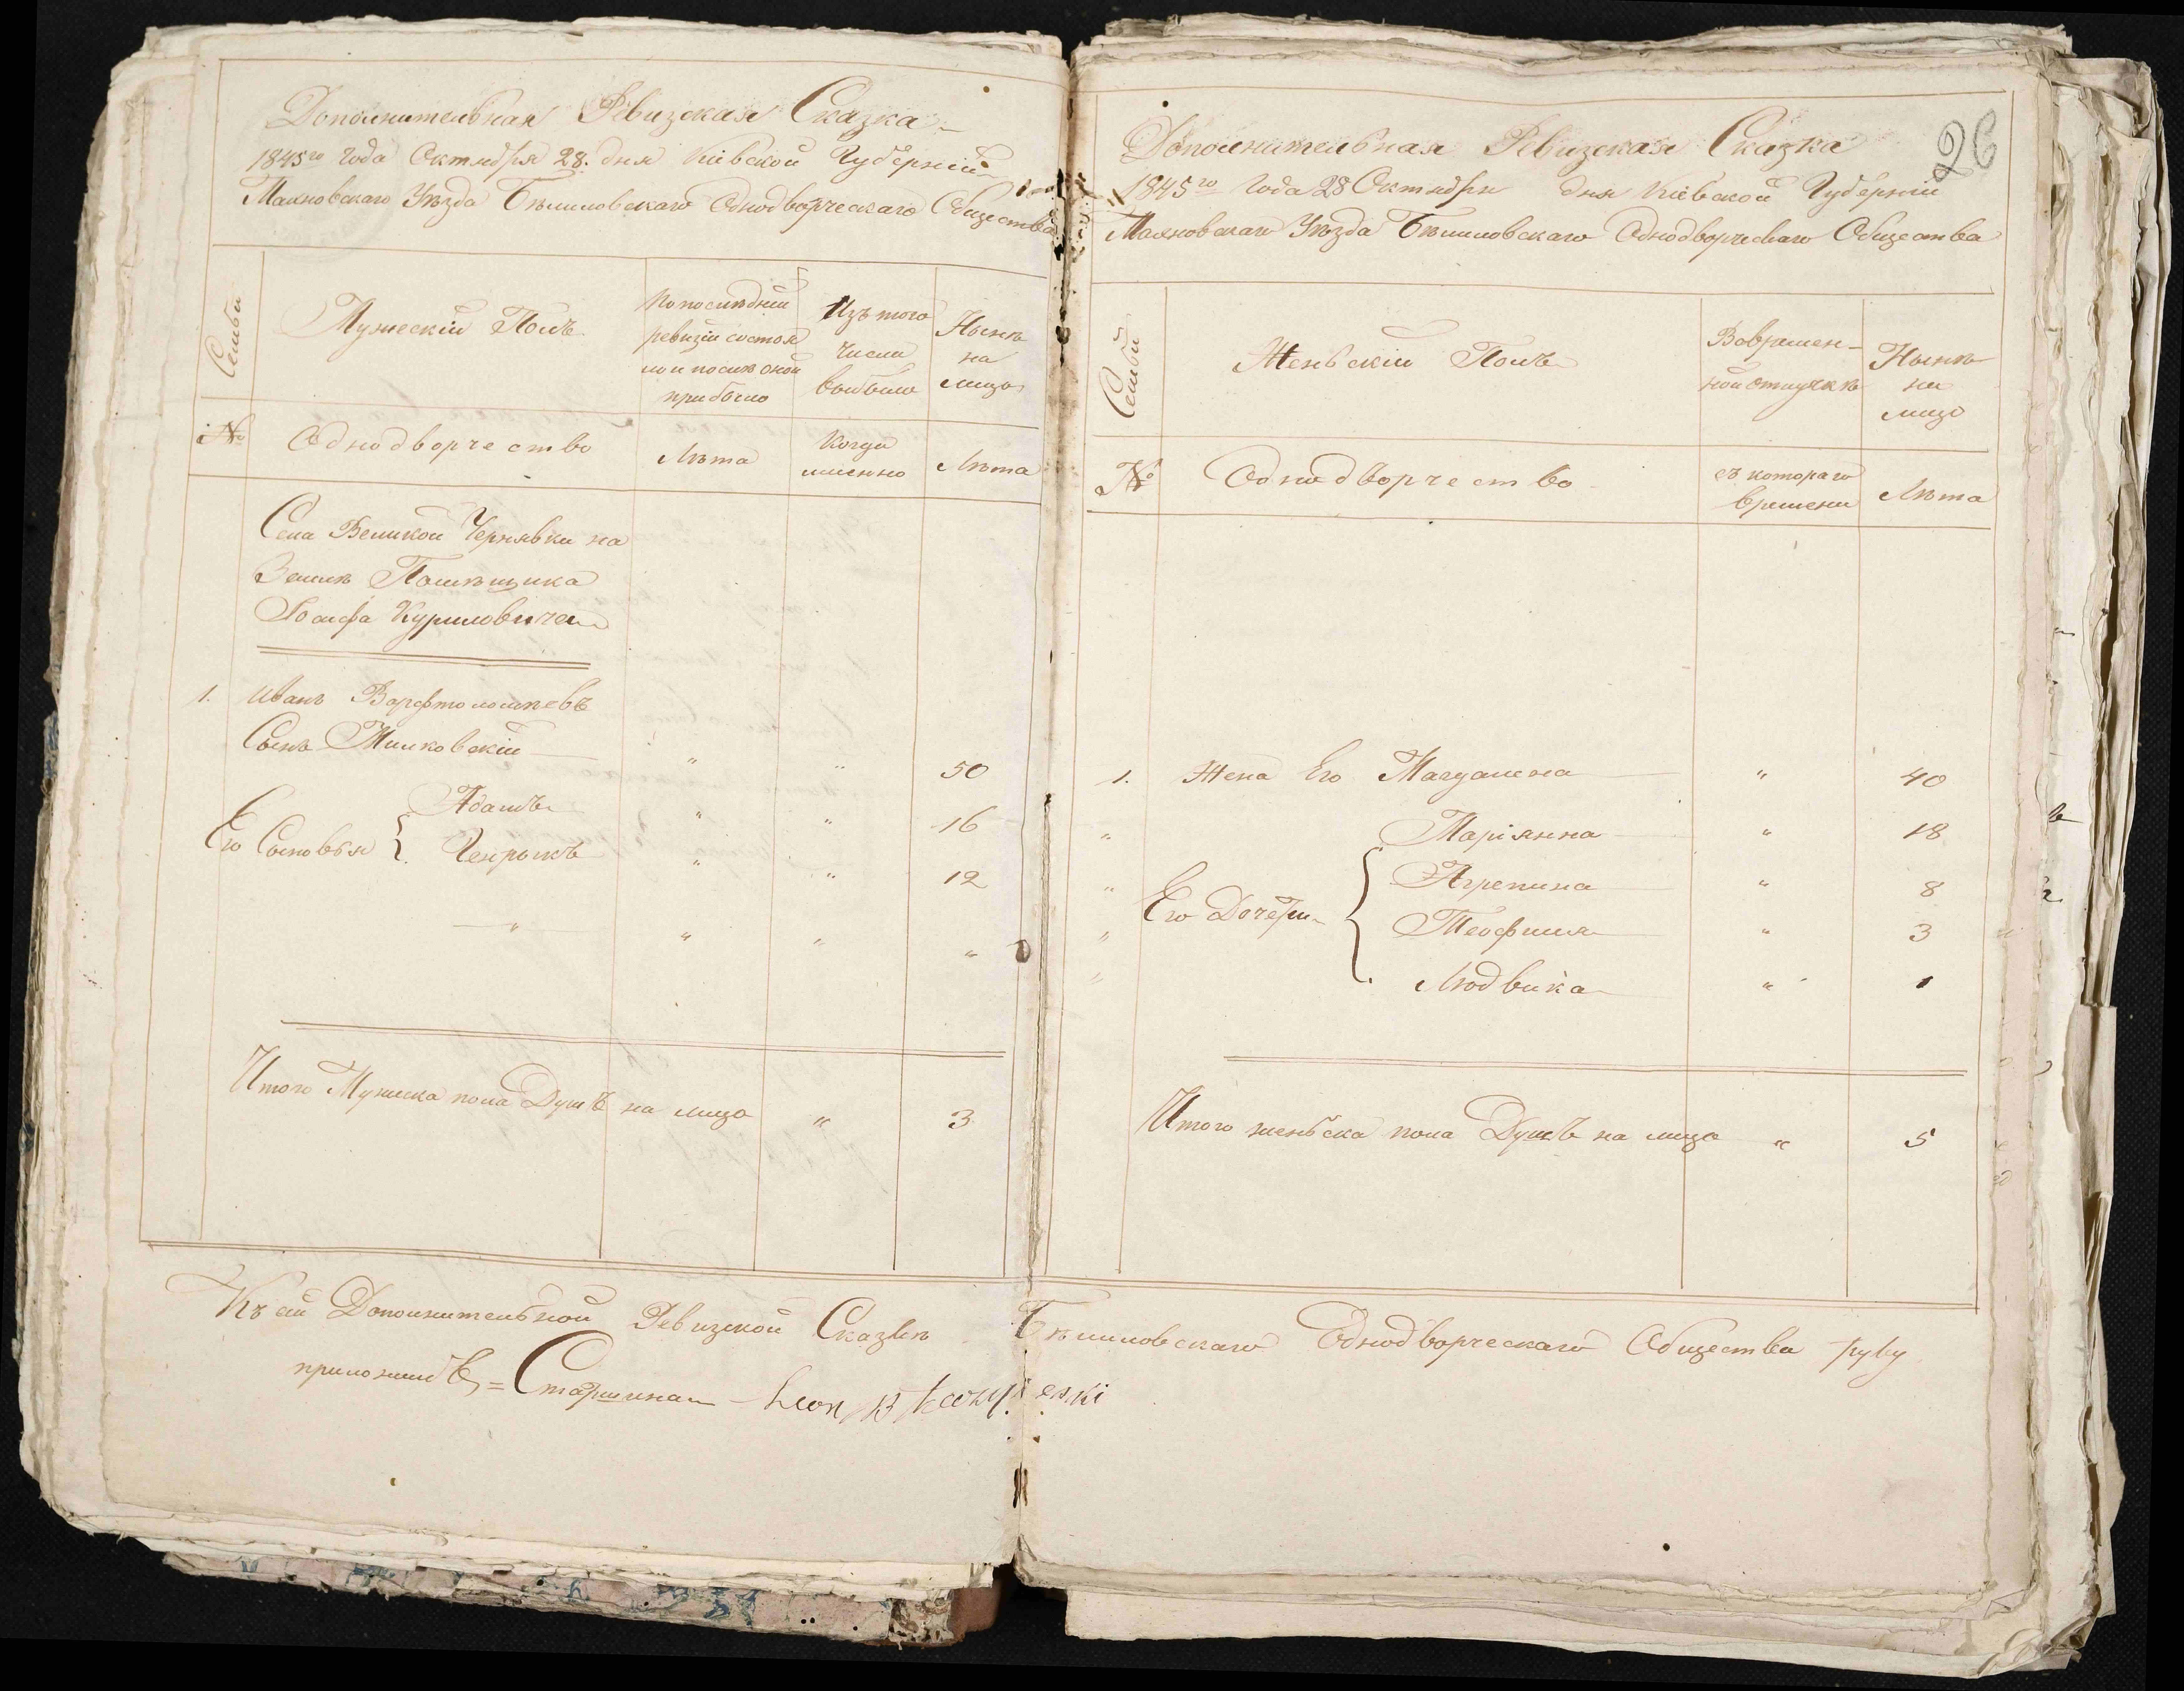 Дополнительная Ревизская Сказка
1845го года Октября 28. дня Кіевской Губерніи
Махновскаго Уѣзда Бѣлиловскаго Однодворческаго Общества
Семьи
Мужескій Полъ
По послѣдній
ревизіи состоя
ло и послѣ оной
прибыло
Изъ того
числа
выбыло
Нынѣ
на
лицо
№
Однодворчество
Лѣта
Когда
именно
Лѣта
Села Великой Чернявки на
Землѣ Помѣщика
Куриловича
1. Иванъ Варфтоломѣевъ
Сынъ Милковскій " " 50
Его Сыновья { Адамъ " " 16
Генрыкъ " " 12
" " " "
Итого Мужеска пола Душъ на лицо " 3
26
Дополнительная Ревизская Сказка
1845го года 28 Октября дня Кіевской Губерніи
Махновскаго Уѣзда Бѣлиловскаго Однодворческаго Общества
Семьи
Женьскій Полъ
Вовремен-
ной отлучкѣ
Нынѣ
на
лицо
№
Однодворчество
съ котораго
времени
Лѣта
1. Жена Его Магдалена " 40
" Маріянна " 18
" Его Дочери { Агрепина " 8
" Теофилия " 3
" Людвика " 1
Итого женьска пола Душъ на лицо " 5
Къ сій Дополнительной Ревизской Сказкѣ Бѣлиловскаго Однодворческаго Общества руку
приложилъ = Старшина Leon